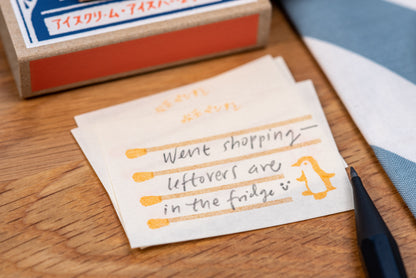 アイスクリーム・アイス
Went shopping—
leftovers are
in the fridge